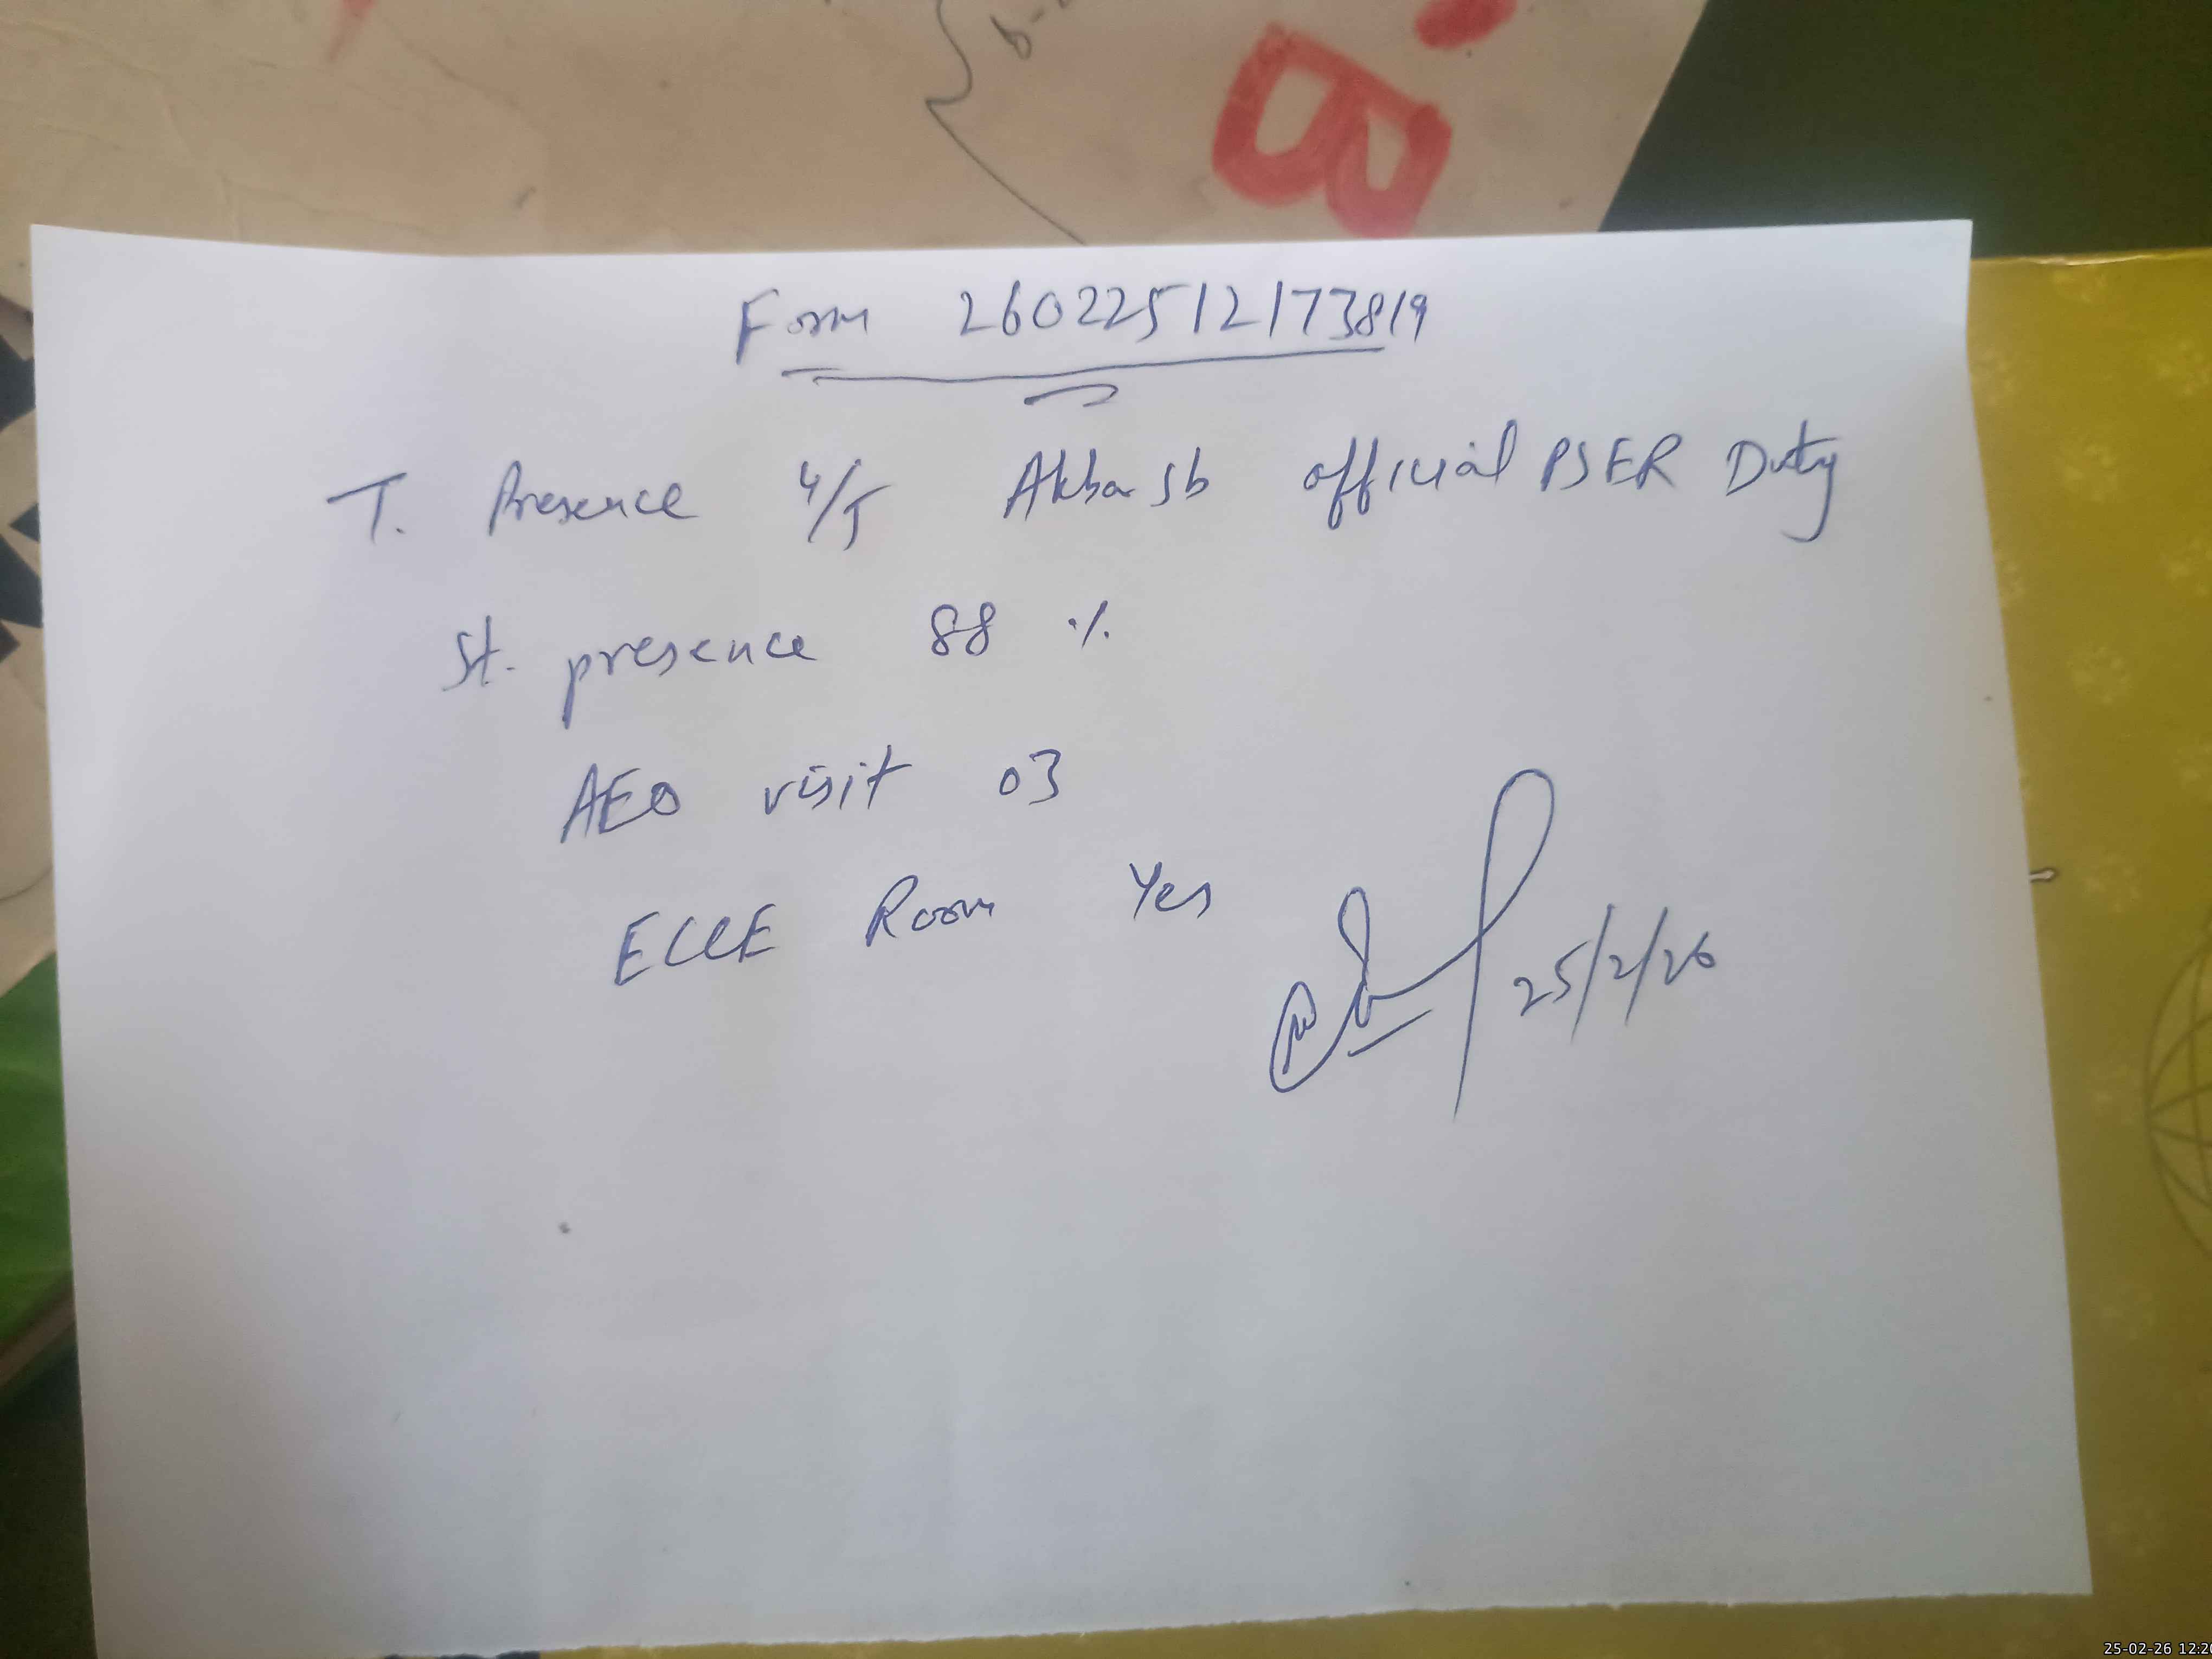 B.
Form 26022512173819
T. Presence 4/5 Akbar sb official PSER Duty
St. presence 88 %
AEO visit 03
ECCE Room Yes
25/2/26
25-02-26 12:20